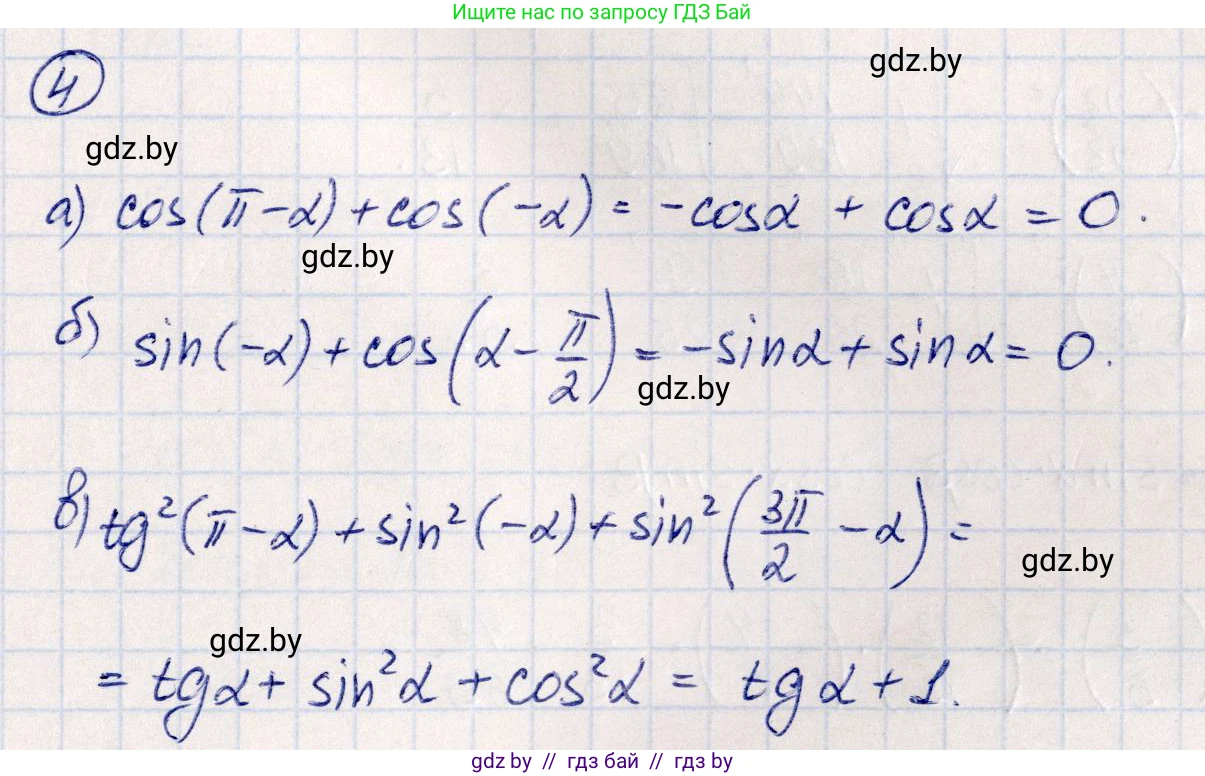 Ищите нас по запросу ГДЗ Бай
4
gdz.by
gdz.by
а) cos(π-α)+cos(-α) = -cosα + cosα = 0.
gdz.by
б) sin(-α)+cos(α-π/2) = -sinα + sinα = 0.
gdz.by
в) tg²(π-α)+sin²(-α)+sin²(3π/2 -α) =
gdz.by
gdz.by
= tgα+ sin²α + cos²α = tgα+1.
gdz by // гдз бай // гдз by